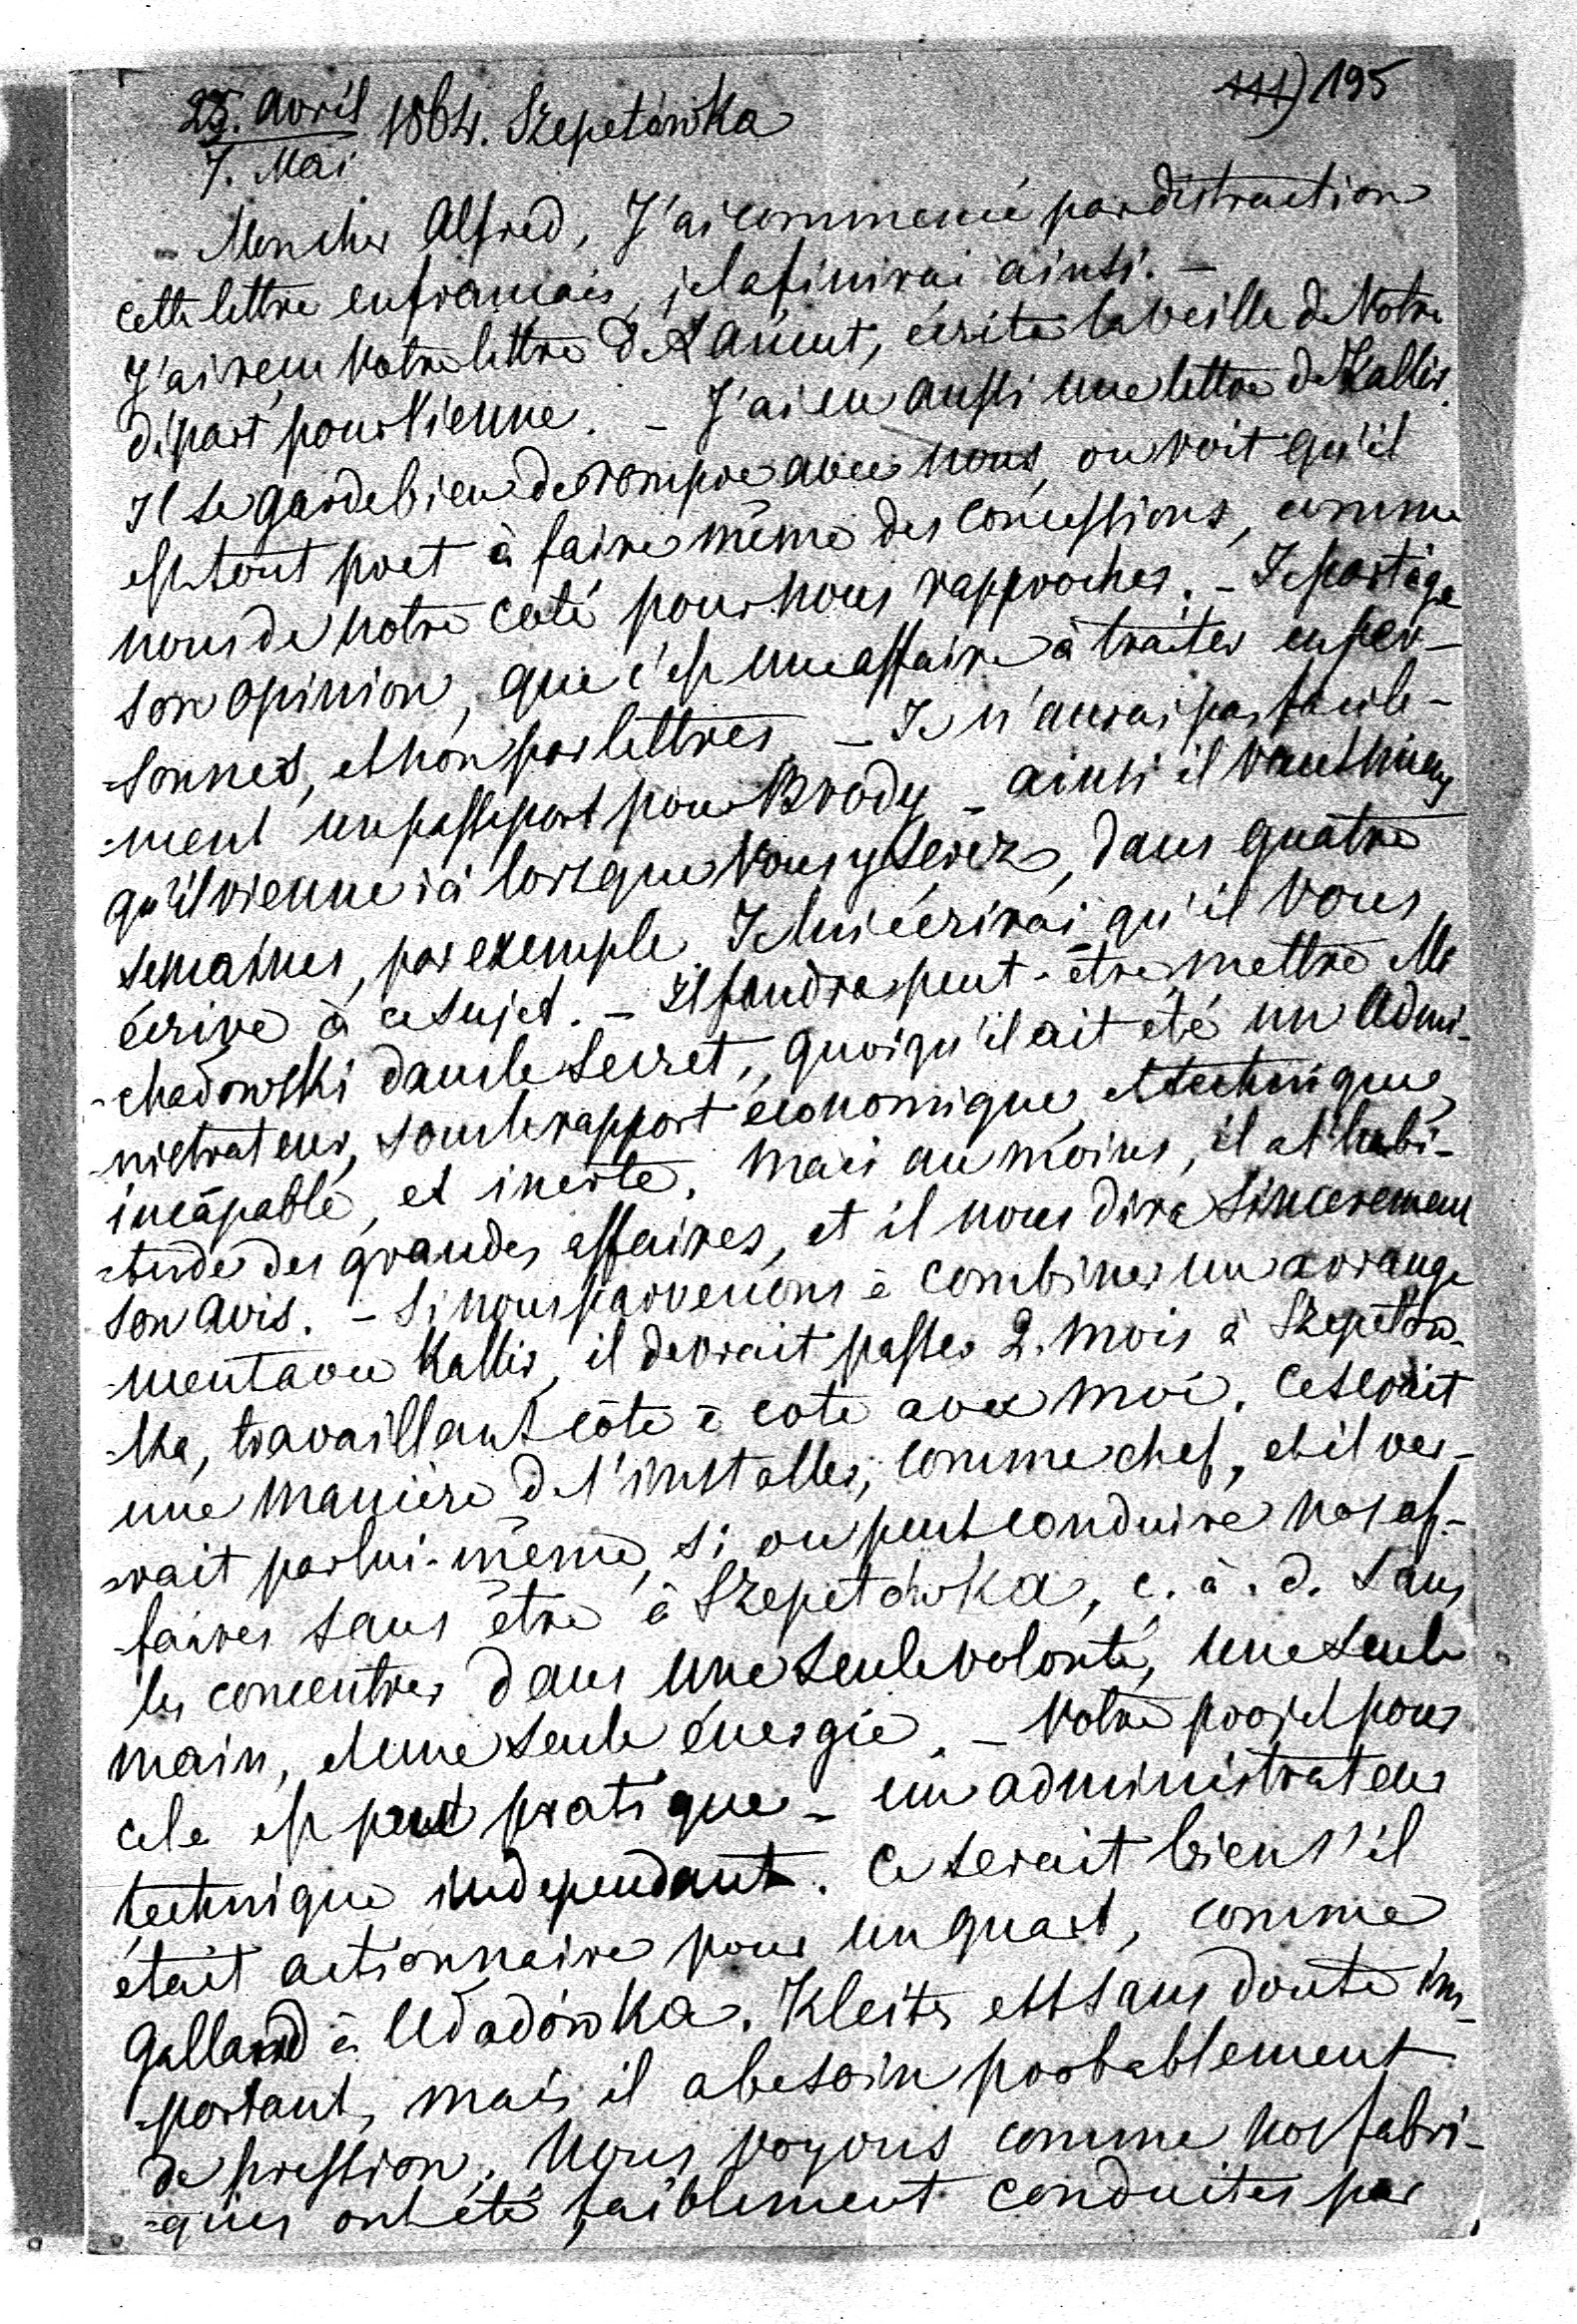 111) 195
25. avril
7. Mai 1864. Szepetówka
Mon cher Alfred, J'ai commencé par distraction
cette lettre en français, je la finirai ainsi. –
J'ai reçu Votre lettre de Łańcut, écrite la veille de Votre
départ pour Vienne. – J'ai eu aussi une lettre de Kallir.
Il se garde bien de rompre avec nous, on voit qu'il
est tout pret à faire même des concessions, comme
nous de notre coté pour nous rapprocher. – Je partage
son opinion, que c'est une affaire à traiter en per-
-sonnes, et non par lettres. – Je n'aurai pas facile-
-ment un passeport pour Brody – ainsi il vaut mieux
qu'il vienne ici lorsque Vous y serez, dans quatre
semaines, par exemple. Je lui écrirai qu'il Vous
écrive à ce sujet. – Il faudra peut-être mettre Mr
-chadowski dans le secret, quoiqu'il ait été un admi-
-nistrateur, sous le rapport économique et technique,
incapable, et inerte. Mais au moins, il a l'habi-
-tude des grandes affaires, et il nous dira sincerement
son avis. – Si nous parvenons à combiner un arrange
-ment avec Kallir, il devrait passer 2. mois à Szepetów-
-ka, travaillant côte à cote avec moi. Ce serait
une manière de l'installer, comme chef, et il ver-
-rait par lui-même, si on peut conduire nos af-
-faires sans être à Szepetówka, c. à. d. sans
les concentrer dans une seule volonté, une seule
main, et une seule énergie. – Votre projet pour
cela est peu pratique – un administrateur
technique independant. Ce serait bien s'il
était actionnaire pour un quart, comme
Galland à Uładówka. Kleits est sans doute im-
-portant, mais il a besoin probablement
de pression. Nous voyons comme nos fabri-
-ques ont été faiblement conduites par